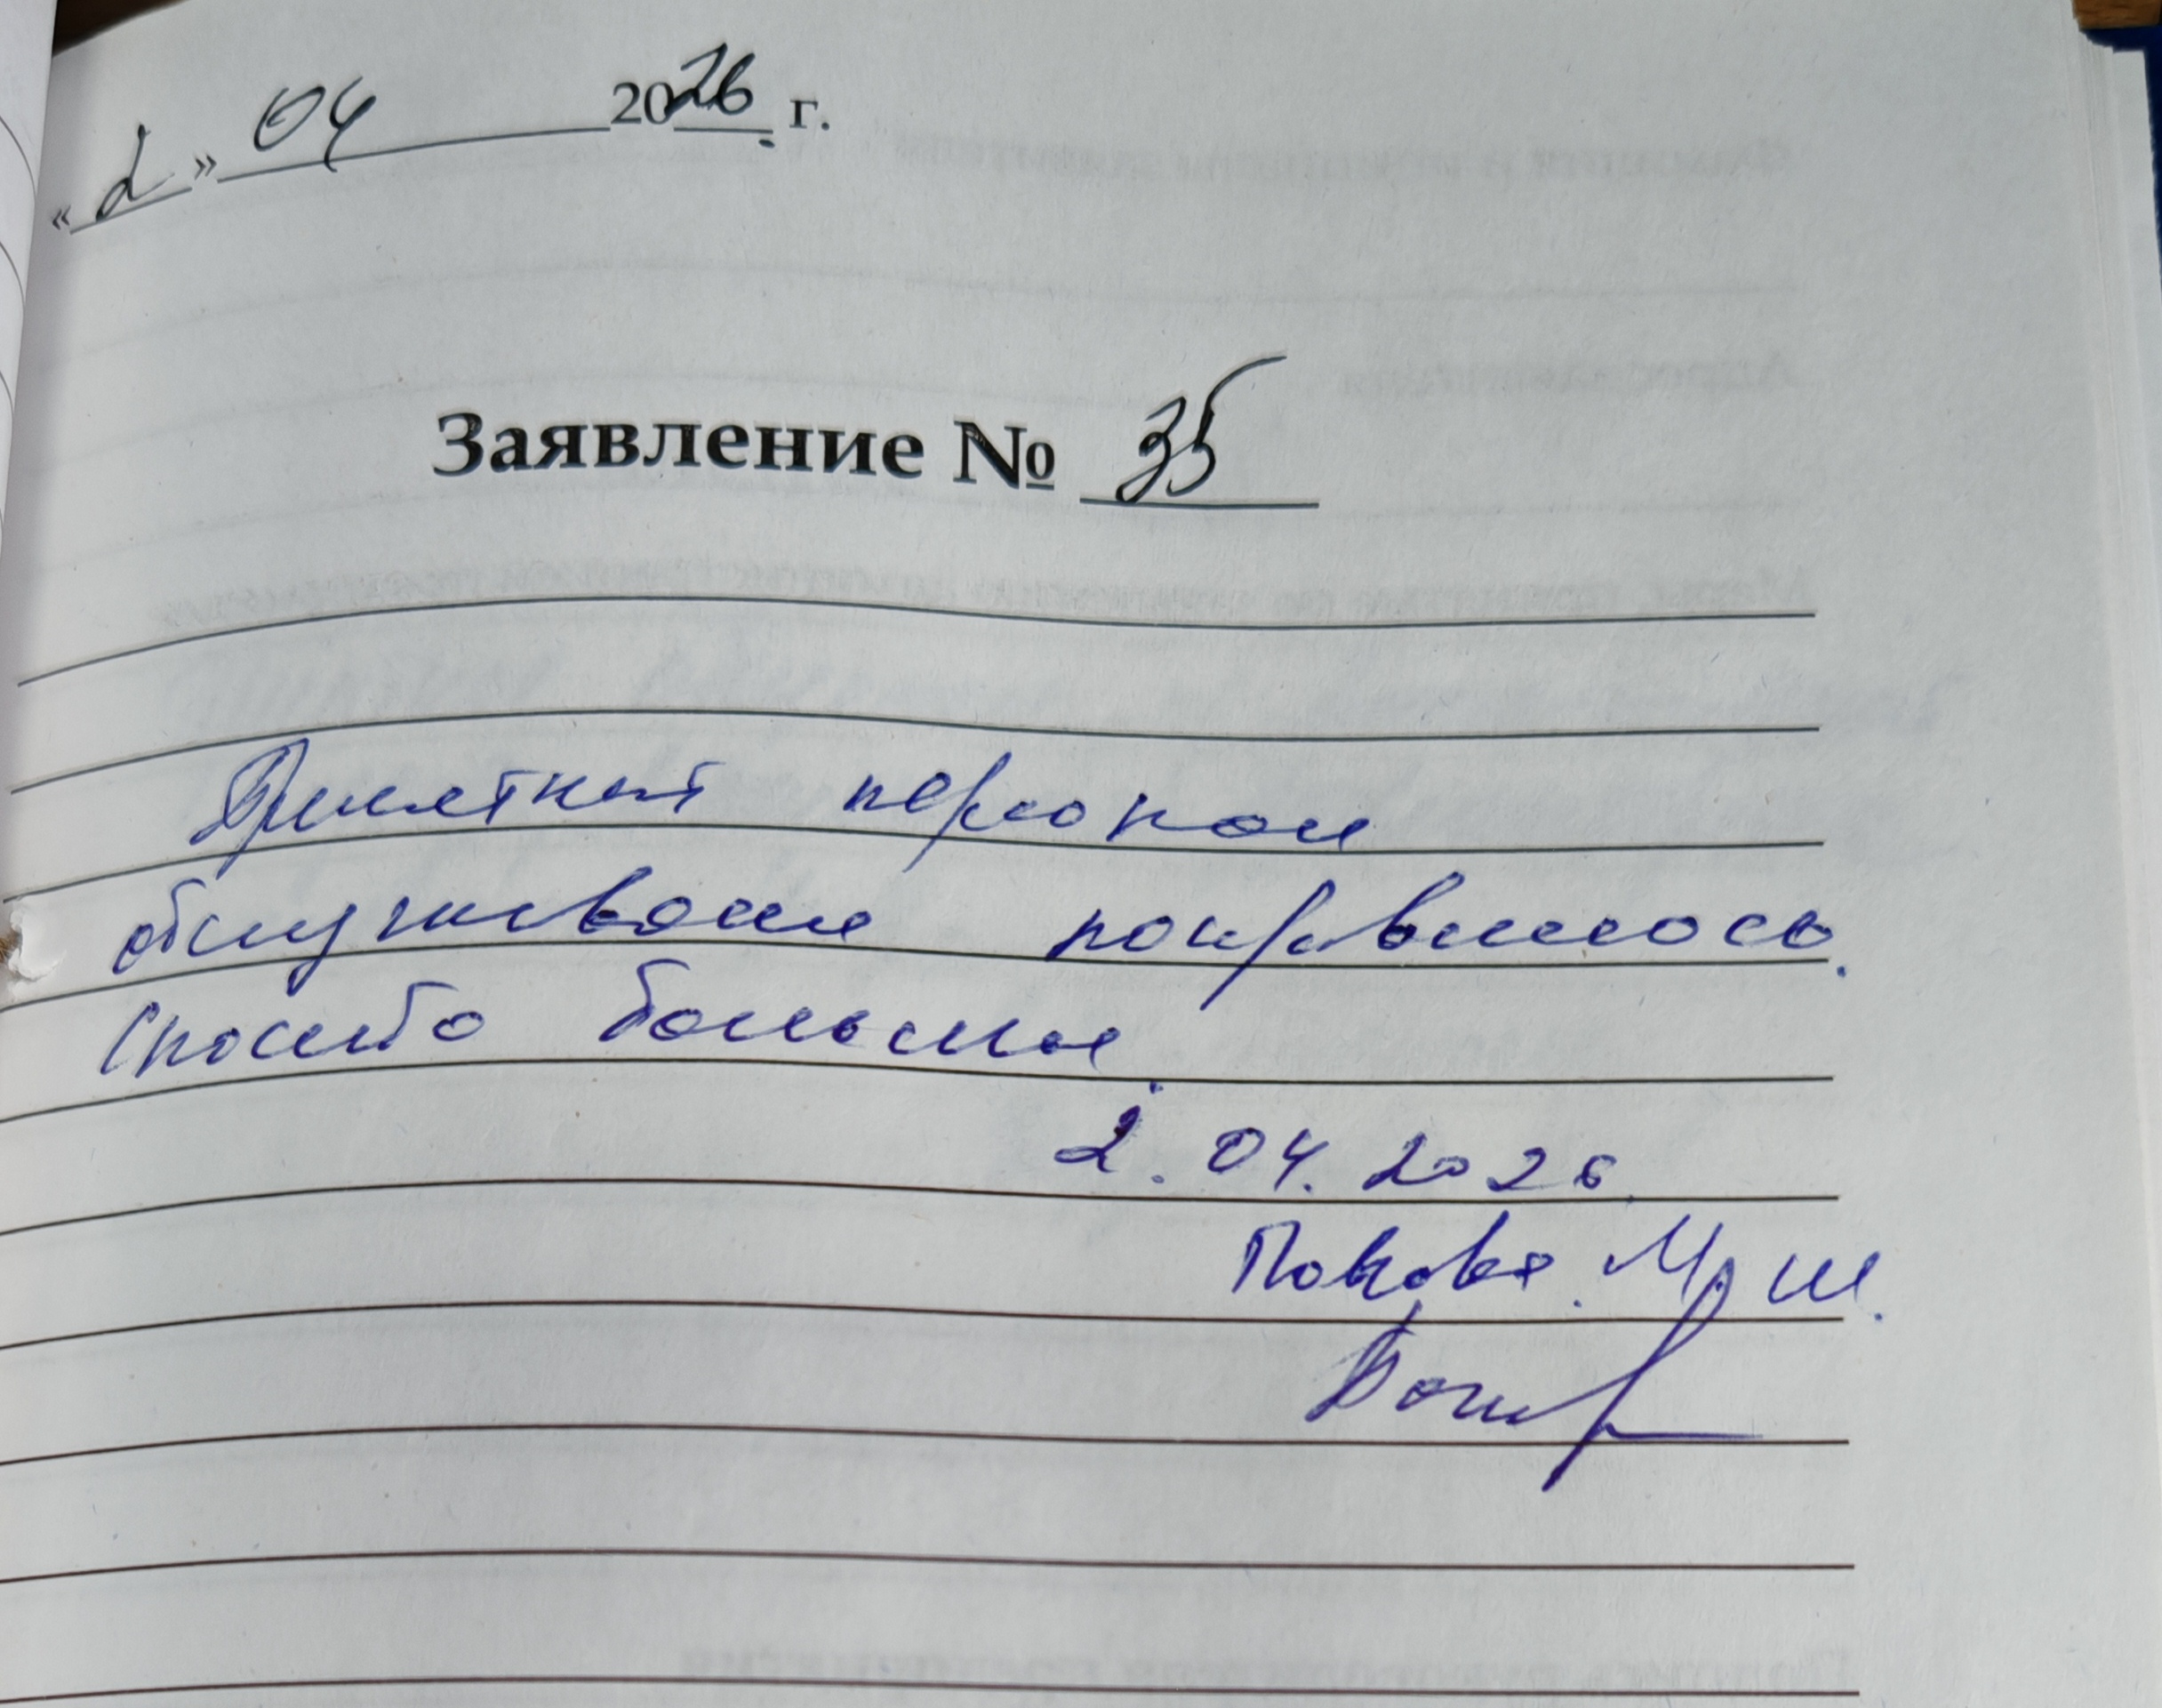 «2» 04 2026 г.
Заявление № 35
Приятный персонал
обслуживание понравилось.
Спасибо большое.
2.04.2026
М. Ш.